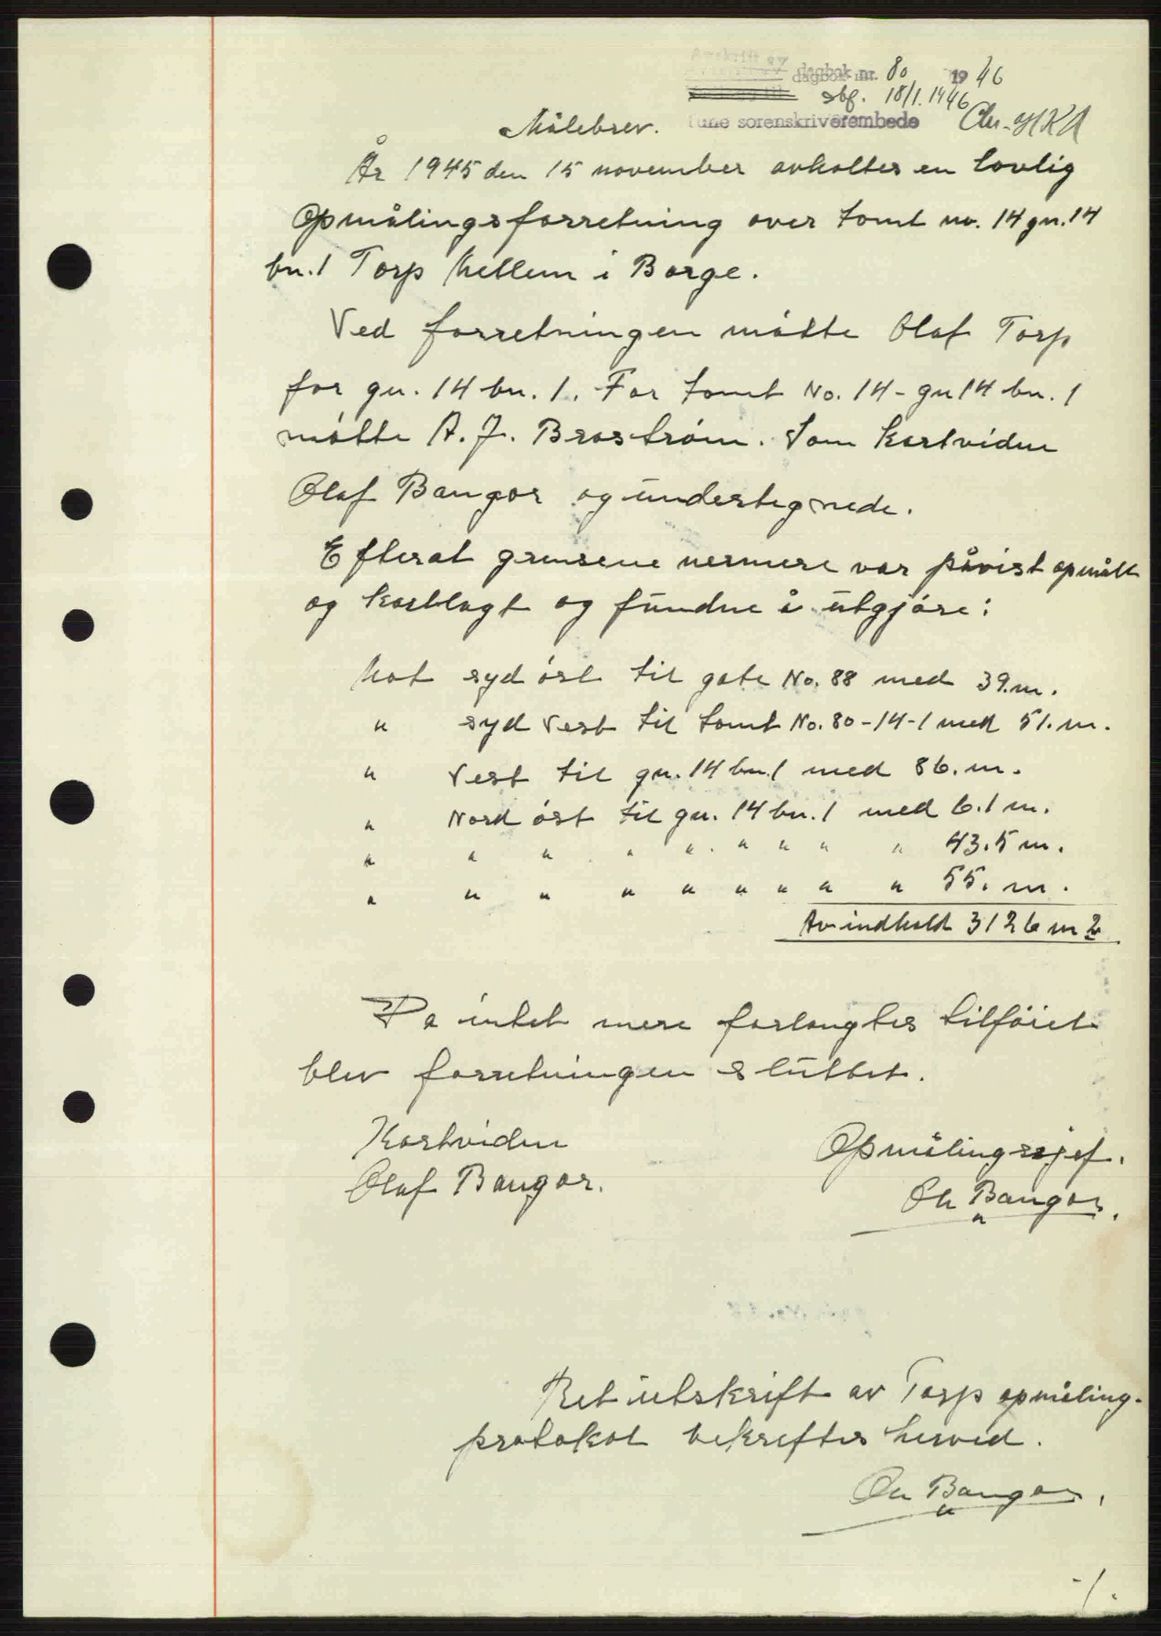 dagbok nr. 80 1946
18/1. 1946
Tune sorenskriverembede
Målebrev.
År 1945 den 15 november avholtes en lovlig
Opmålingsforretning over tomt no. 14 gn. 14
bn. 1 Torp Mellem i Borge.
Ved forretningen møtte Olaf Torp
for gn. 14 bn. 1. For tomt No. 14 - gn 14 bn. 1
møtte A. J. Brostrøm. Som kartvidne
Olaf Bangor og undertegnede.
Efterat grensene nermere var påvist opmålt
og kartlagt og fundne å utgjøre:
Mot syd øst til gate No. 88 med 39. m.
" syd Vest til tomt No. 80-14-1 med 51. m.
" Vest til gn. 14 bn. 1 med 86. m.
" Nord øst til gn. 14 bn. 1 med 6.1 m.
" " " " " " " " " 43.5 m.
" " " " " " " " " 55. m.
Av indhold 3126 m 2
Da intet mere forlangtes tilføiet
blev forretningen sluttet.
Kartvidne
Olaf Bangor.
Opmålingssjef.
Chr Bangor.
Ret utskrift av Torp opmåling-
protokol bekreftes herved.
Chr Bangor.
-/.